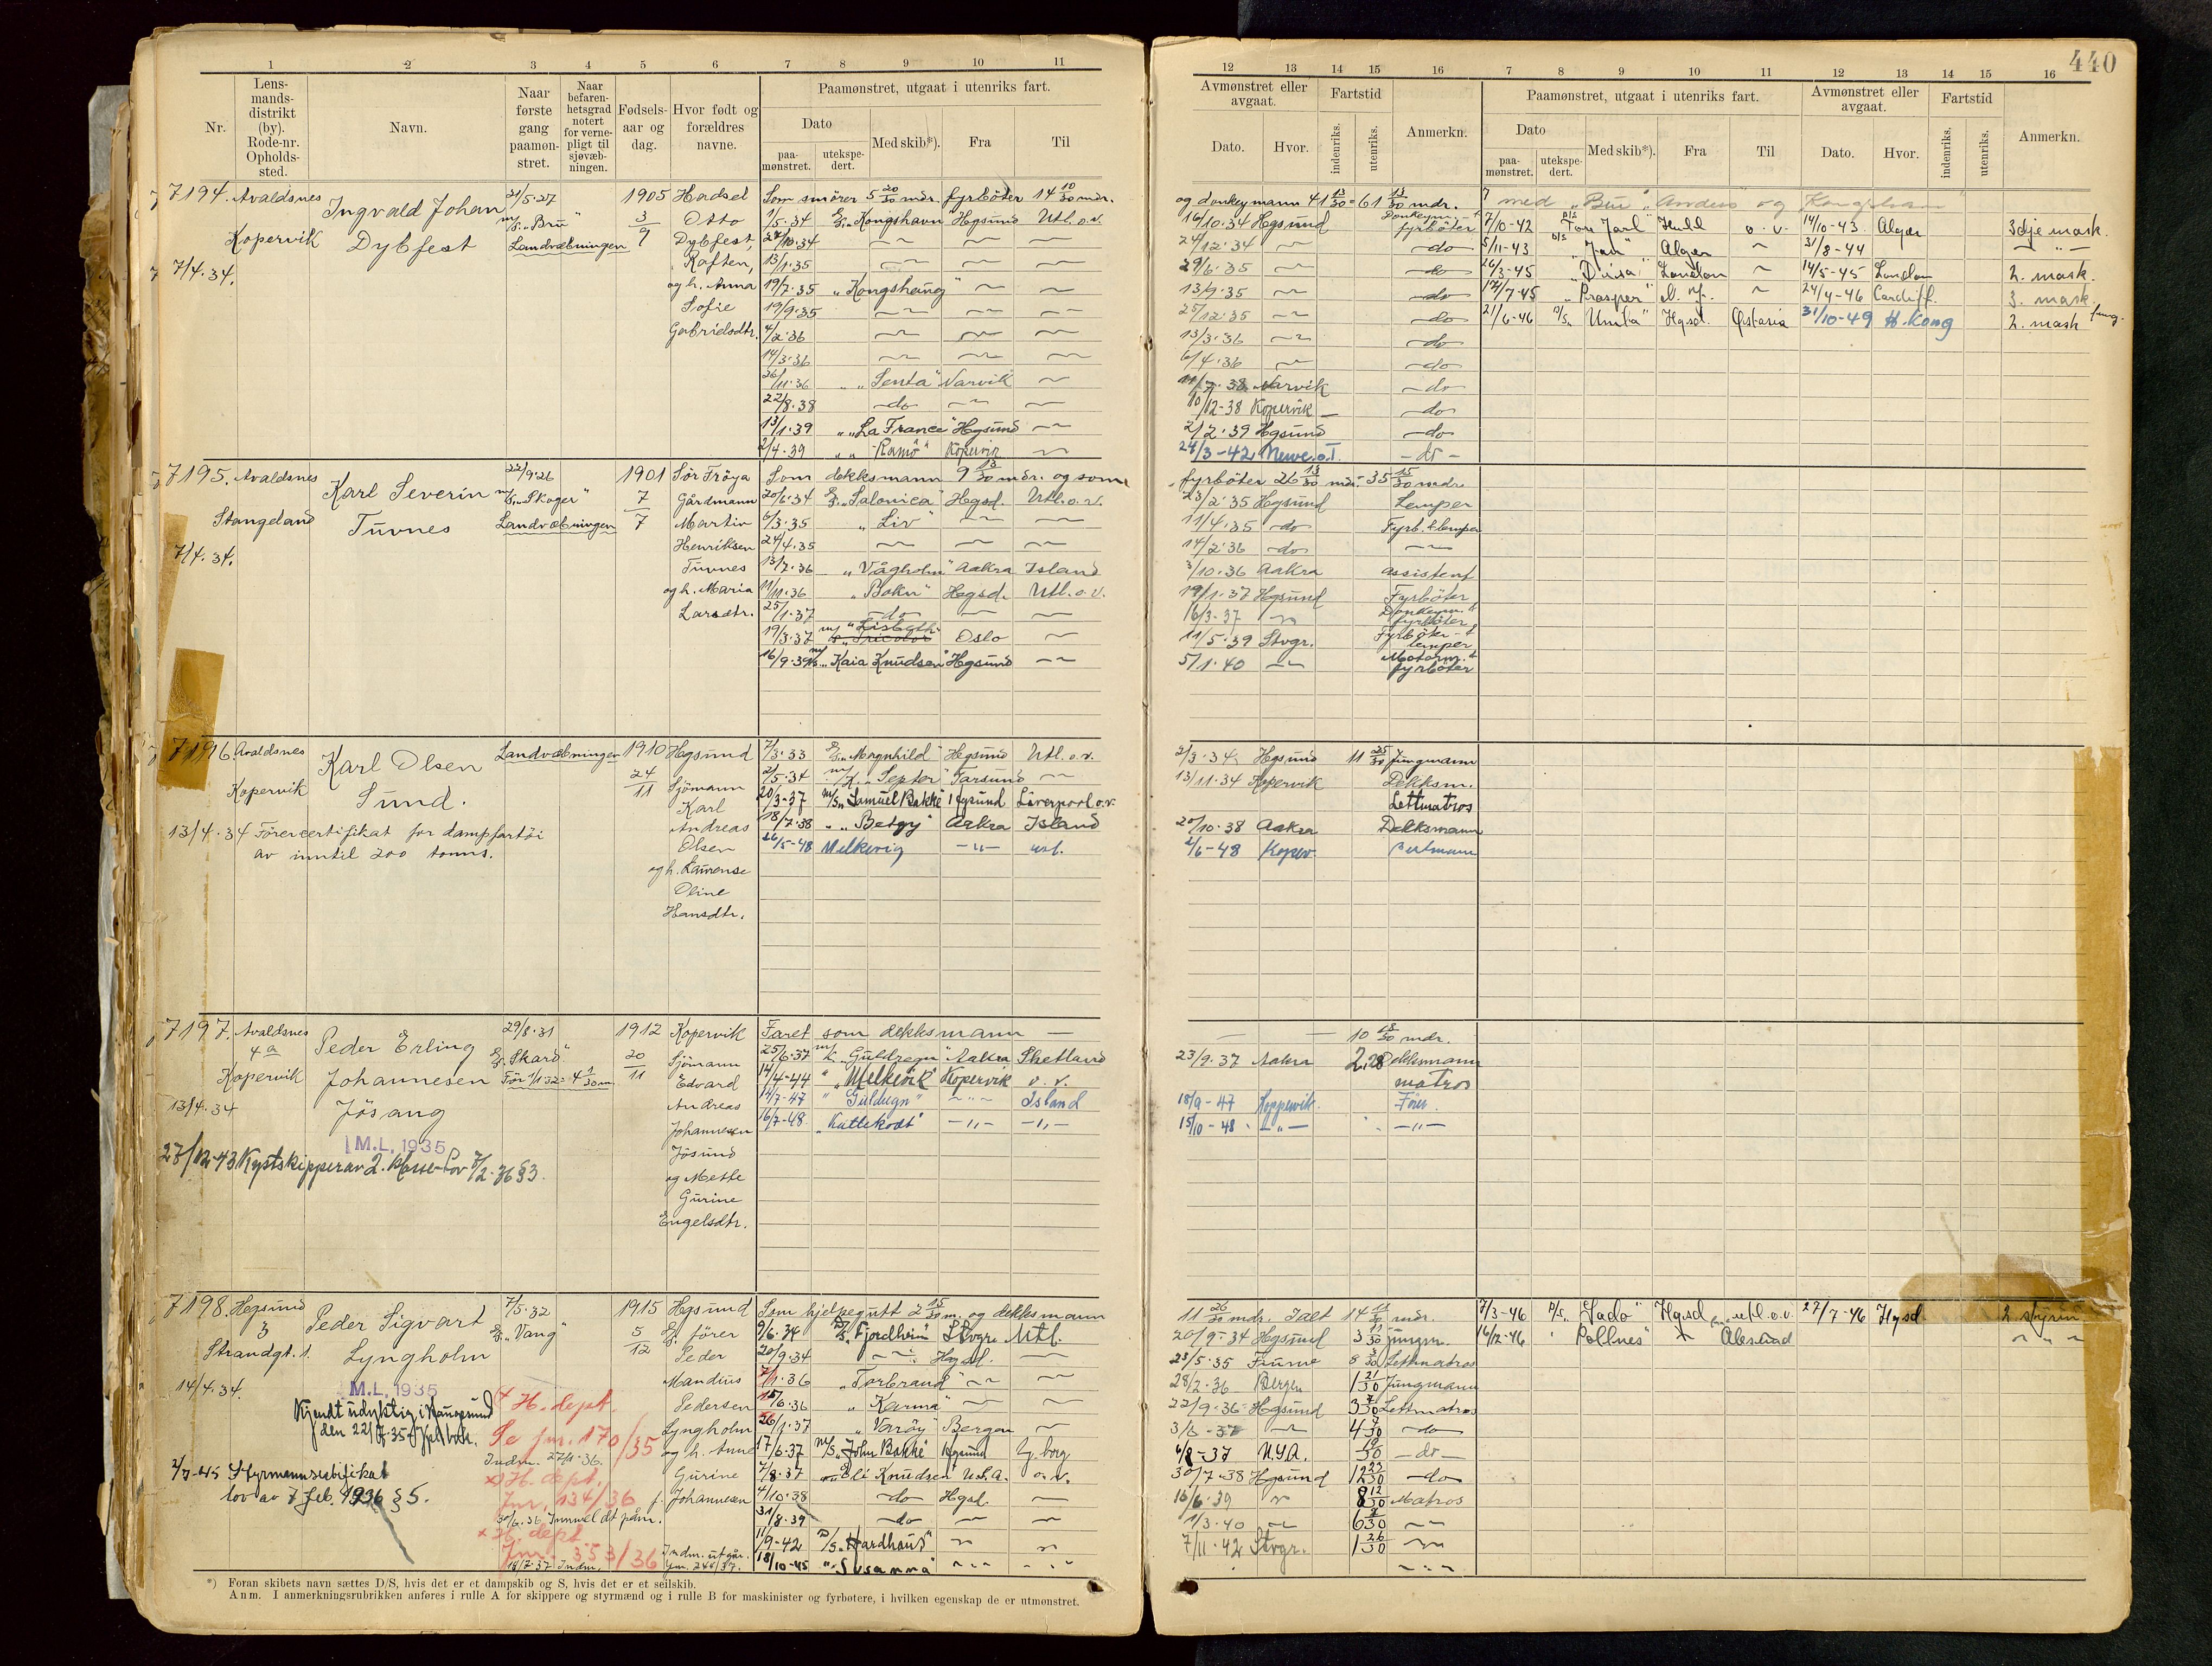 440
1 2 3 4 5 6 7 8 9 10 11
Nr.
Lens-
mands-
distrikt
(by).
Rode-nr.
Opholds-
sted.
Navn.
Naar
første
gang
paamøn-
stret.
Naar
befaren-
hetsgrad
notert
for verne-
pligt til
sjøvæb-
ningen.
Fødsels-
aar og
dag.
Hvor født og
forældres
navne.
Paamønstret, utgaat i utenriks fart.
Dato
paa-
mønstret.
utekspe-
dert.
Med skib*).
Fra
Til
12 13 14 15 16 7 8 9 10 11 12 13 14 15 16
Avmønstret eller
avgaat.
Dato.
Hvor.
Fartstid
indenriks.
utenriks.
Anmerkn.
Paamønstret, utgaat i utenriks fart.
Dato
paa-
mønstret.
utekspe-
dert.
Med skib*).
Fra
Til
Avmønstret eller
avgaat.
Dato.
Hvor.
Fartstid
indenriks.
utenriks.
Anmerkn.
7194. Avaldsnes
Kopervik
7/4.34.
Ingvald Johan
Dybfest
21/5.27
m/s. "Bru"
Landvæbningen
1905
3/9
Hadsel
Otto
Dybfest,
Raften,
og h. Anna
Sofie
Gabrielsdtr.
Som smører 5 20/30 mdr. fyrbøter 14 10/30 mdr.
1/5.34 "Kongshavn" Hgsund Utl. o.v.
24/10.34
13/1.35
19/7.35 "Kongshaug"
19/9.35
4/2.36
14/3.36
26/11.36 "Senta" Narvik
22/8.38 do
13/1.39 "La France" Hgsund
2/4.39 "Ramø" Kopervik
og donkeymann 41 13/30 = 61 13/30 mdr.
16/10.34 Hgsund Donkeym. & fyrbøter
24/12.34 do
29/6.35 do
13/9.35 do
25/12.35 do
13/3.36 do
6/4.36 do
11/7.38 Narvik do
10/12-38 Kopervik do
2/2.39 Hgsund do
24/3-42 Newc.o.T. do
med "Bru", Anders og Kongshavn
7/10-42 D/S "Tore Jarl" Hull o.v. 14/10-43 Alger 3dje mask.
5/11-43 D/S "Jan" Alger 31/8-44
26/3-45 "Duisa" London 14/5-45 London 2. mask.
17/7-45 "Prosper" N.Y. 24/4-46 Cardiff. 3. mask
21/6-46 D/S "Unita" Hgsd. Østasia 31/10-49 H.Kong 2. mask
7195. Avaldsnes
Stangeland
7/4.34.
Karl Severin
Tuvnes
22/9.26
m/s. "Skoger"
Landvæbningen
1901
7/7
Sør Frøya
Gårdmann
Martin
Henriksen
Tuvnes
og h. Maria
Larsdtr.
Som dekksmann 9 13/30 mdr. og som
20/6.34 "Salonica" Hgsd. Utl. o.v.
6/3.35 "Liv"
24/4.35
13/7.36 "Vågholm" Aakra Island
11/11.36 "Bokn" Hgsd. Utl. o.v.
25/1.37 do
19/3.37 "Lisbeth" "Tricolor" Oslo
16/9.39 "Kaia Knudsen" Hgsund
fyrbøter 26 13/30 mdr. 35 15/30 mdr.
23/2.35 Hgsund Lemper
11/4.35 do Fyrb. & lemper
14/2.36 do
3/10.36 Aakra Assistent
19/1.37 Hgsund Fyrbøter
16/3.37 Donkeym. & fyrbøter
11/5.39 Stvgr. Fyrbøter & lemper
5/1.40 Motorm. & fyrbøter
7196. Avaldsnes
Kopervik
13/4.34 Førercertifikat for dampfartøi
av inntil 200 tonns.
Karl Olsen
Sund.
Landvæbningen
1910
24/11
Hgsund
Sjømann
Karl
Andreas
Olsen
og h. Laurense
Oline
Hansdtr.
7/3.33 "Magnhild" Hgsund Utl. o.v.
2/5.34 "Septer" Farsund
20/3-37 m/s. "Samuel Bakke" Hgsund Liverpool o.v.
18/7.38 "Betzy" Aakra Island
26/5-48 Melkevig utl.
2/3.34 Hgsund 11 25/30 Jungmann
13/11.34 Kopervik Dekksm.
Lettmatros
20/10.38 Aakra Dekksmann
2/6-48 Koperv. Bestmann
7197. Avaldsnes
4a
Kopervik
13/4.34
Peder Erling
Johannesen
Jøsang
M.L. 1935
29/8.31
"Skard"
1912
20/11
Kopervik
Sjømann
Edvard
Andreas
Johannesen
Jøsund
og Mette
Gurine
Engelsdtr.
27/12-43 Kystskipper av 2. klasse Lov 7/2-36 § 3.
Faret som dekksmann
25/6.37 "Guldregn" Aakra Shetland
14/4-44 "Melkevik" Kopervik o.v.
14/7-47 "Guldregn" Island
16/7-48
10 18/30 mdr.
23/9.37 Aakra 2,28 Dekksmann
matros
18/9-47 Koppervik. Fører.
15/10-48
7198. Hgsund
3
Strandgt. 1.
14/4.34.
Peder Sigvart
Lyngholm
M.L. 1935
7/5.32
"Vang"
1915
5/12
Hgsund
fører
Peder
Mandius
Pedersen
Lyngholm
og h. Anne
Gurine
f. Johannesen
Kjendt udyktig i Haugesund
den 22/7.35
H. dept.
Se jnr. 170/35
Indm. 27/1.36.
H. dept.
Jnr. 134/36
30/6.36 Innmeldt påm.
H. dept.
Jnr. 353/36
18/7.37 Indm.
2/7-45 Styrmannscertifikat
lov av 7 feb. 1936 § 5.
Som hjelpegutt 2 15/30 m. og dekksmann
9/6.34 "Fjordheim" Stvgr. Utl.
20/9.34 Hgsd.
7/1.36 "Torbrand"
15/6.36 "Karmi"
26/1.37 "Varøy" Bergen
17/6.37 m/s. "John Bakke" Hgsund G.borg
7/8.37 "Eli Knudsen" U.S.A. o.v.
4/10.38 do Hgsd.
31/8.39 do
11/9-42 D/S. "Hardhaus"
18/10-45 "Susanna"
11 26/30 mdr. Ialt 14 11/30 mdr.
20/9-34 Hgsund 3 11/30 Jungm.
23/5.35 Fiume 8 3/30 Lettmatros
28/2.36 Bergen 1 21/30 Jungmann
22/9.36 Hgsund 3 7/30 Lettmatros
3/6-37 4 9/30 do
6/8-37 U.S.A. 19/30 do
30/7.38 Hgsund 12 23/30 do
16/6.39 8 12/30 Matros
1/3.40 6
7/11-42 Stvgr. 1 26/30
7/3-46 D/S. "Lado" Hgsd utl. o.v. 27/7-46 Hgsd 2 styrm
16/12-46 "Pollnes" Ålesund
*) Foran skibets navn sættes D/S, hvis det er et dampskib og S, hvis det er et seilskib.
Anm. I anmerkningsrubrikken anføres i rulle A for skippere og styrmænd og i rulle B for maskinister og fyrbøtere, i hvilken egenskap de er utmønstret.